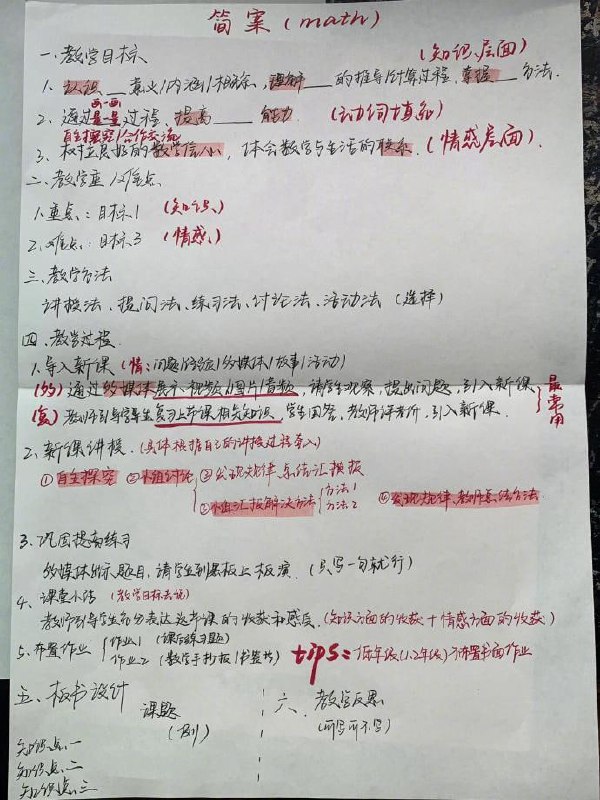 简案(math)
一.教学目标 (知识层面)
1. 认识__意义/内涵/相称,理解__的推导/计算过程,掌握__方法.
画一画
2. 通过量一量过程,提高___能力. (动词填紧)
自主探究/合作交流
3. 树立良好的数学信心,体会数学与生活的联系.(情感层面).
二.教学重/难点
1.重点:目标1 (知识)
2.难点:目标3 (情感)
三.教学方法
讲授法、提问法、练习法、讨论法、活动法 (选择)
四.教学过程.
1.导入新课 (情:问题/经验/多媒体/故事/活动)
(多)通过多媒体展示视频/图片/音频,请学生观察,提出问题,引入新课
(复)教师引导学生复习上节课相关知识,学生回答,教师评析,引入新课. 最常用
2.新课讲授.(具体根据自己的讲授过程写入)
①自主探究 ②小组讨论 ③发现规律、总结汇报板
③小组汇报解决方法 方法1 方法2 ④发现规律、教师总结方法
3.巩固提高练习
多媒体出示题目,请学生到黑板上板演.(只写一句就行)
4.课堂小结 (教学目标去说)
教师引导学生充分表达这节课的收获和感受.(知识方面的收获+情感方面的收获)
5.布置作业 作业1 (课后练习题)
作业2 (数学手抄报/书签等) tips:低年级(1.2年级)不布置书面作业
五.板书设计 六.教学反思
课题 (可写可不写)
(例)
知识点一
知识点二
知识点三